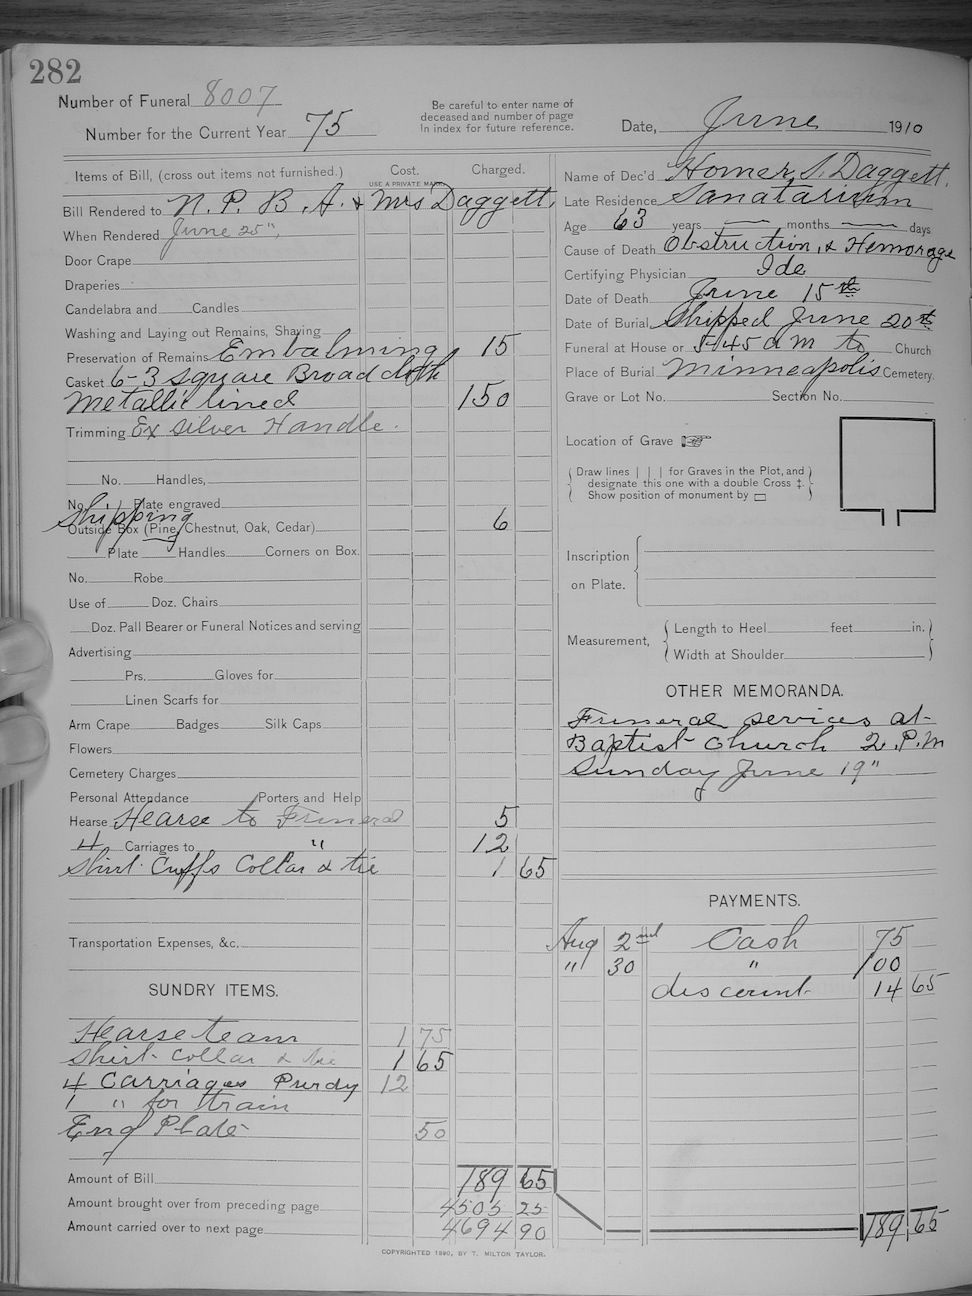 282
Number of Funeral 8007
Number for the Current Year 75
Be careful to enter name of
deceased and number of page
In index for future reference.
Date, June 1910
Items of Bill, (cross out items not furnished.) Cost. Charged.
USE A PRIVATE MARK.
Bill Rendered to N. P. B. A. & Mrs Daggett,
When Rendered June 25"
Door Crape
Draperies
Candelabra and Candles
Washing and Laying out Remains, Shaving
Preservation of Remains Embalming 15
Casket 6-3 square Broadcloth
Metallic lined 150
Trimming Ex Silver Handle.
No. Handles,
No. Plate engraved
Shipping
Outside Box (Pine, Chestnut, Oak, Cedar) 6
Plate Handles Corners on Box.
No. Robe
Use of Doz. Chairs
Doz. Pall Bearer or Funeral Notices and serving
Advertising
Prs. Gloves for
Linen Scarfs for
Arm Crape Badges Silk Caps
Flowers
Cemetery Charges
Personal Attendance Porters and Help
Hearse Hearse to Funeral 5
4 Carriages to " 12
Shirt Cuffs Collar & tie 1 65
Transportation Expenses, &c.
SUNDRY ITEMS.
Hearse team 1 75
Shirt Collar & tie 1 65
4 Carriages Purdy 12
1 " for train
Eng Plate 50
Amount of Bill 189 65
Amount brought over from preceding page 4505 25
Amount carried over to next page 4694 90
Name of Dec'd Homer S. Daggett.
Late Residence Sanatarium
Age 63 years — months — days
Cause of Death Obstruction, & Hemorage
Certifying Physician Ide
Date of Death June 15th
Date of Burial Shipped June 20th
Funeral at House or 8-45 a m to Church
Place of Burial Minneapolis Cemetery.
Grave or Lot No. Section No.
Location of Grave ☞
Draw lines | | | for Graves in the Plot, and
designate this one with a double Cross ‡.
Show position of monument by ▭
Inscription
on Plate.
Measurement,
Length to Heel feet in.
Width at Shoulder
OTHER MEMORANDA.
Funeral services at
Baptist church 2 P.M
Sunday June 19"
PAYMENTS.
Aug 2nd Cash 75
" 30 " 100
discount 14 65
189 65
COPYRIGHTED 1890, BY T. MILTON TAYLOR.